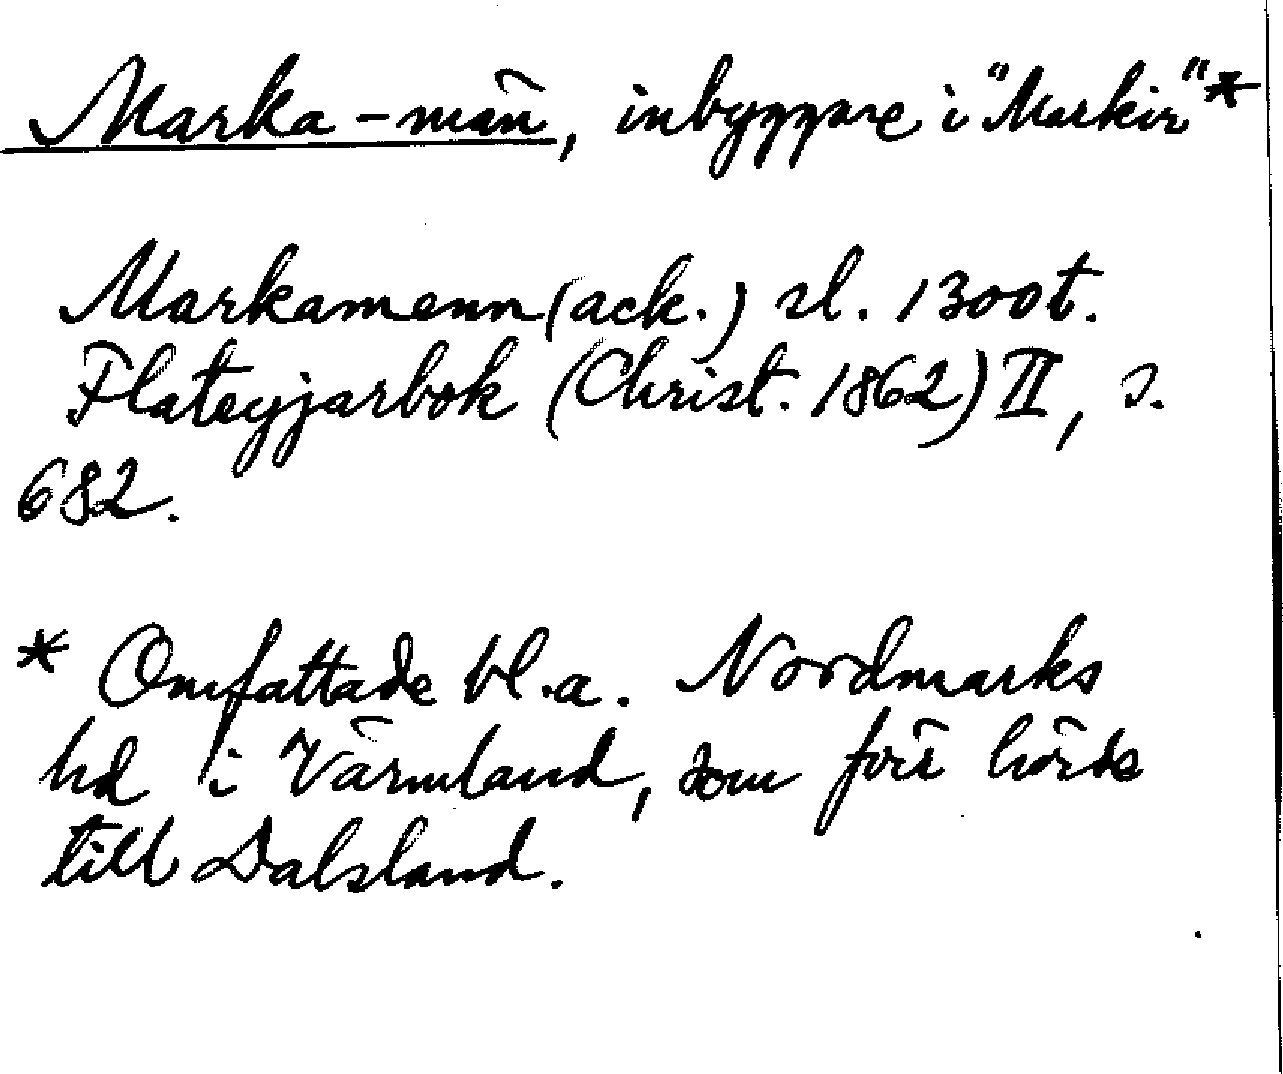 Marka-män, inbyggare i "Markir"*
Markamenn (ack.) sl. 1300t.
Flateyjarbok (Christ. 1862) II, s.
682.
* Omfattade bl.a. Nordmarks
hd i Värmland, som förr hörde
till Dalsland.